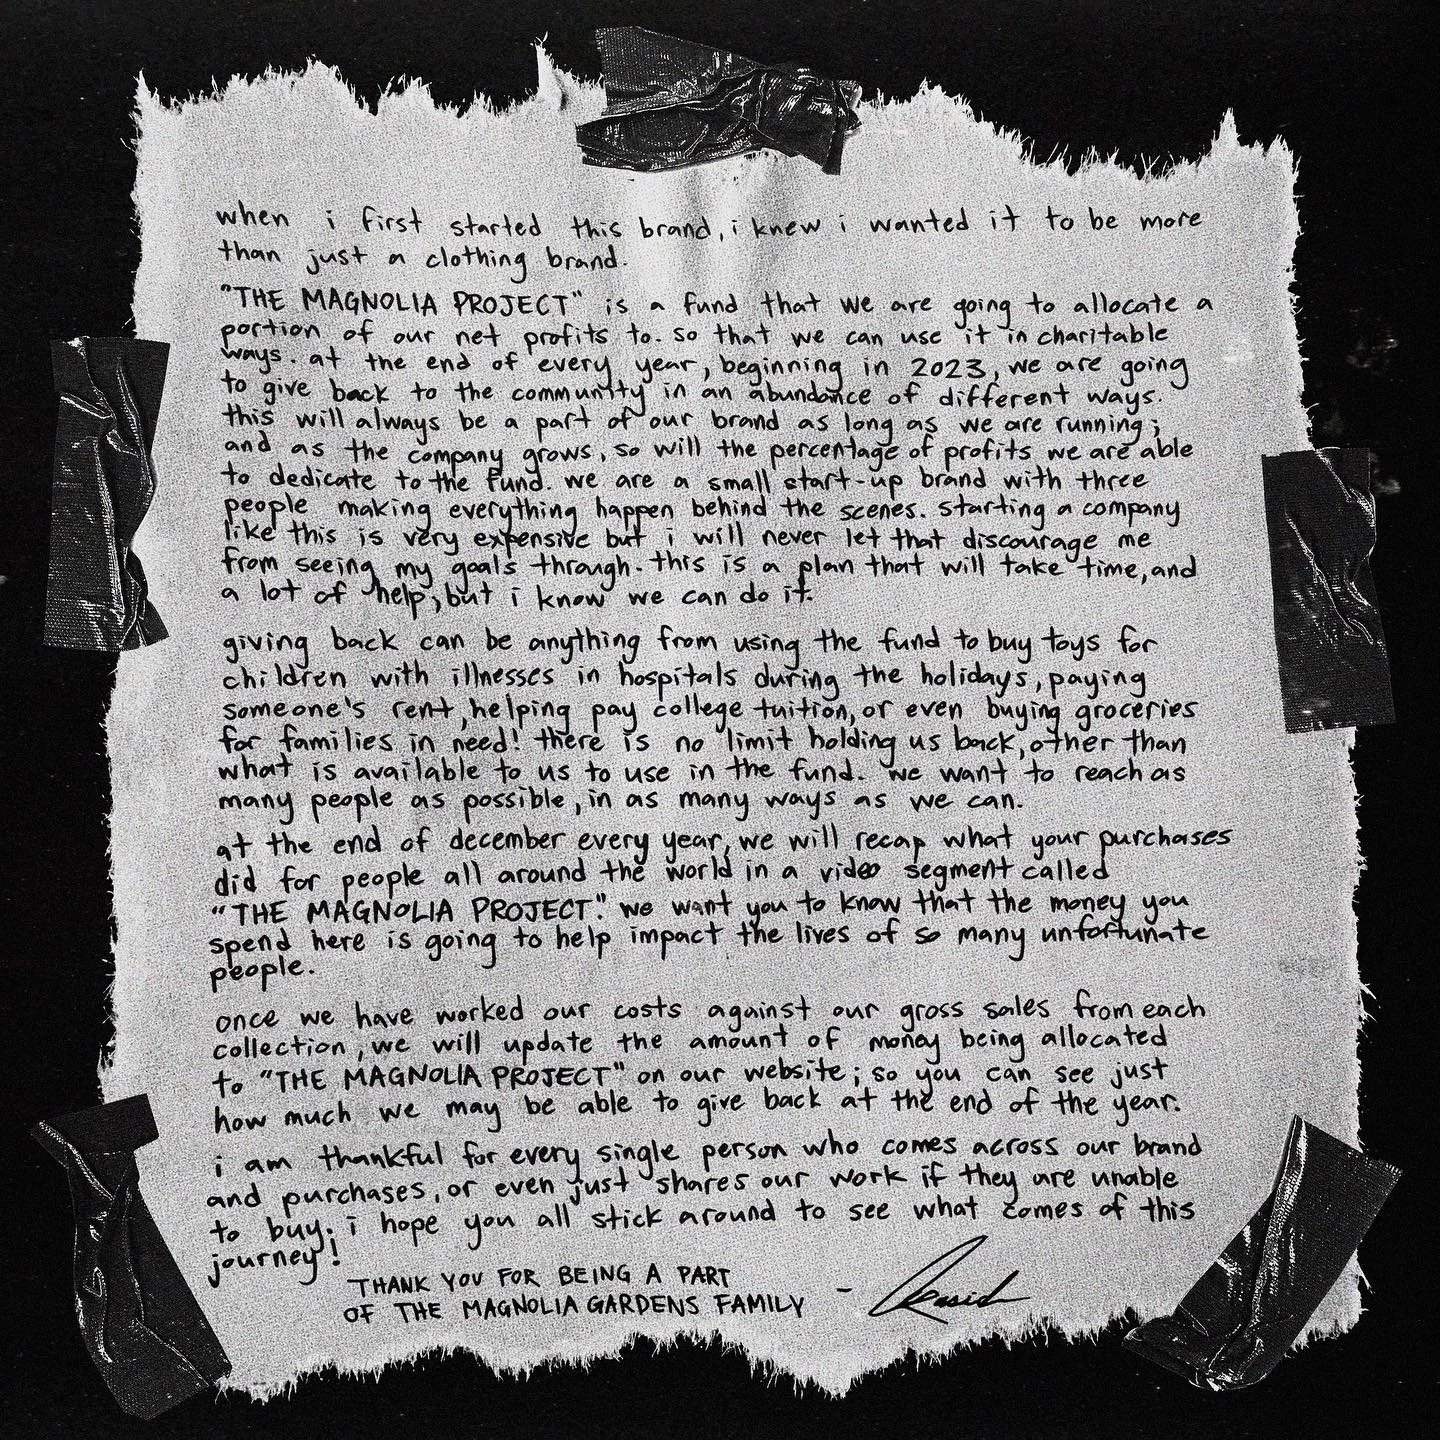 when i first started this brand, i knew i wanted it to be more
than just a clothing brand.
"THE MAGNOLIA PROJECT" is a fund that we are going to allocate a
portion of our net profits to. so that we can use it in charitable
ways. at the end of every year, beginning in 2023, we are going
to give back to the community in an abundance of different ways.
this will always be a part of our brand as long as we are running;
and as the company grows, so will the percentage of profits we are able
to dedicate to the fund. we are a small start-up brand with three
people making everything happen behind the scenes. starting a company
like this is very expensive but i will never let that discourage me
from seeing my goals through. this is a plan that will take time, and
a lot of help, but i know we can do it.
giving back can be anything from using the fund to buy toys for
children with illnesses in hospitals during the holidays, paying
someone's rent, helping pay college tuition, or even buying groceries
for families in need! there is no limit holding us back, other than
what is available to us to use in the fund. we want to reach as
many people as possible, in as many ways as we can.
at the end of december every year, we will recap what your purchases
did for people all around the world in a video segment called
"THE MAGNOLIA PROJECT". we want you to know that the money you
spend here is going to help impact the lives of so many unfortunate
people.
once we have worked our costs against our gross sales from each
collection, we will update the amount of money being allocated
to "THE MAGNOLIA PROJECT" on our website; so you can see just
how much we may be able to give back at the end of the year.
i am thankful for every single person who comes across our brand
and purchases, or even just shares our work if they are unable
to buy. i hope you all stick around to see what comes of this
journey!
THANK YOU FOR BEING A PART
OF THE MAGNOLIA GARDENS FAMILY -